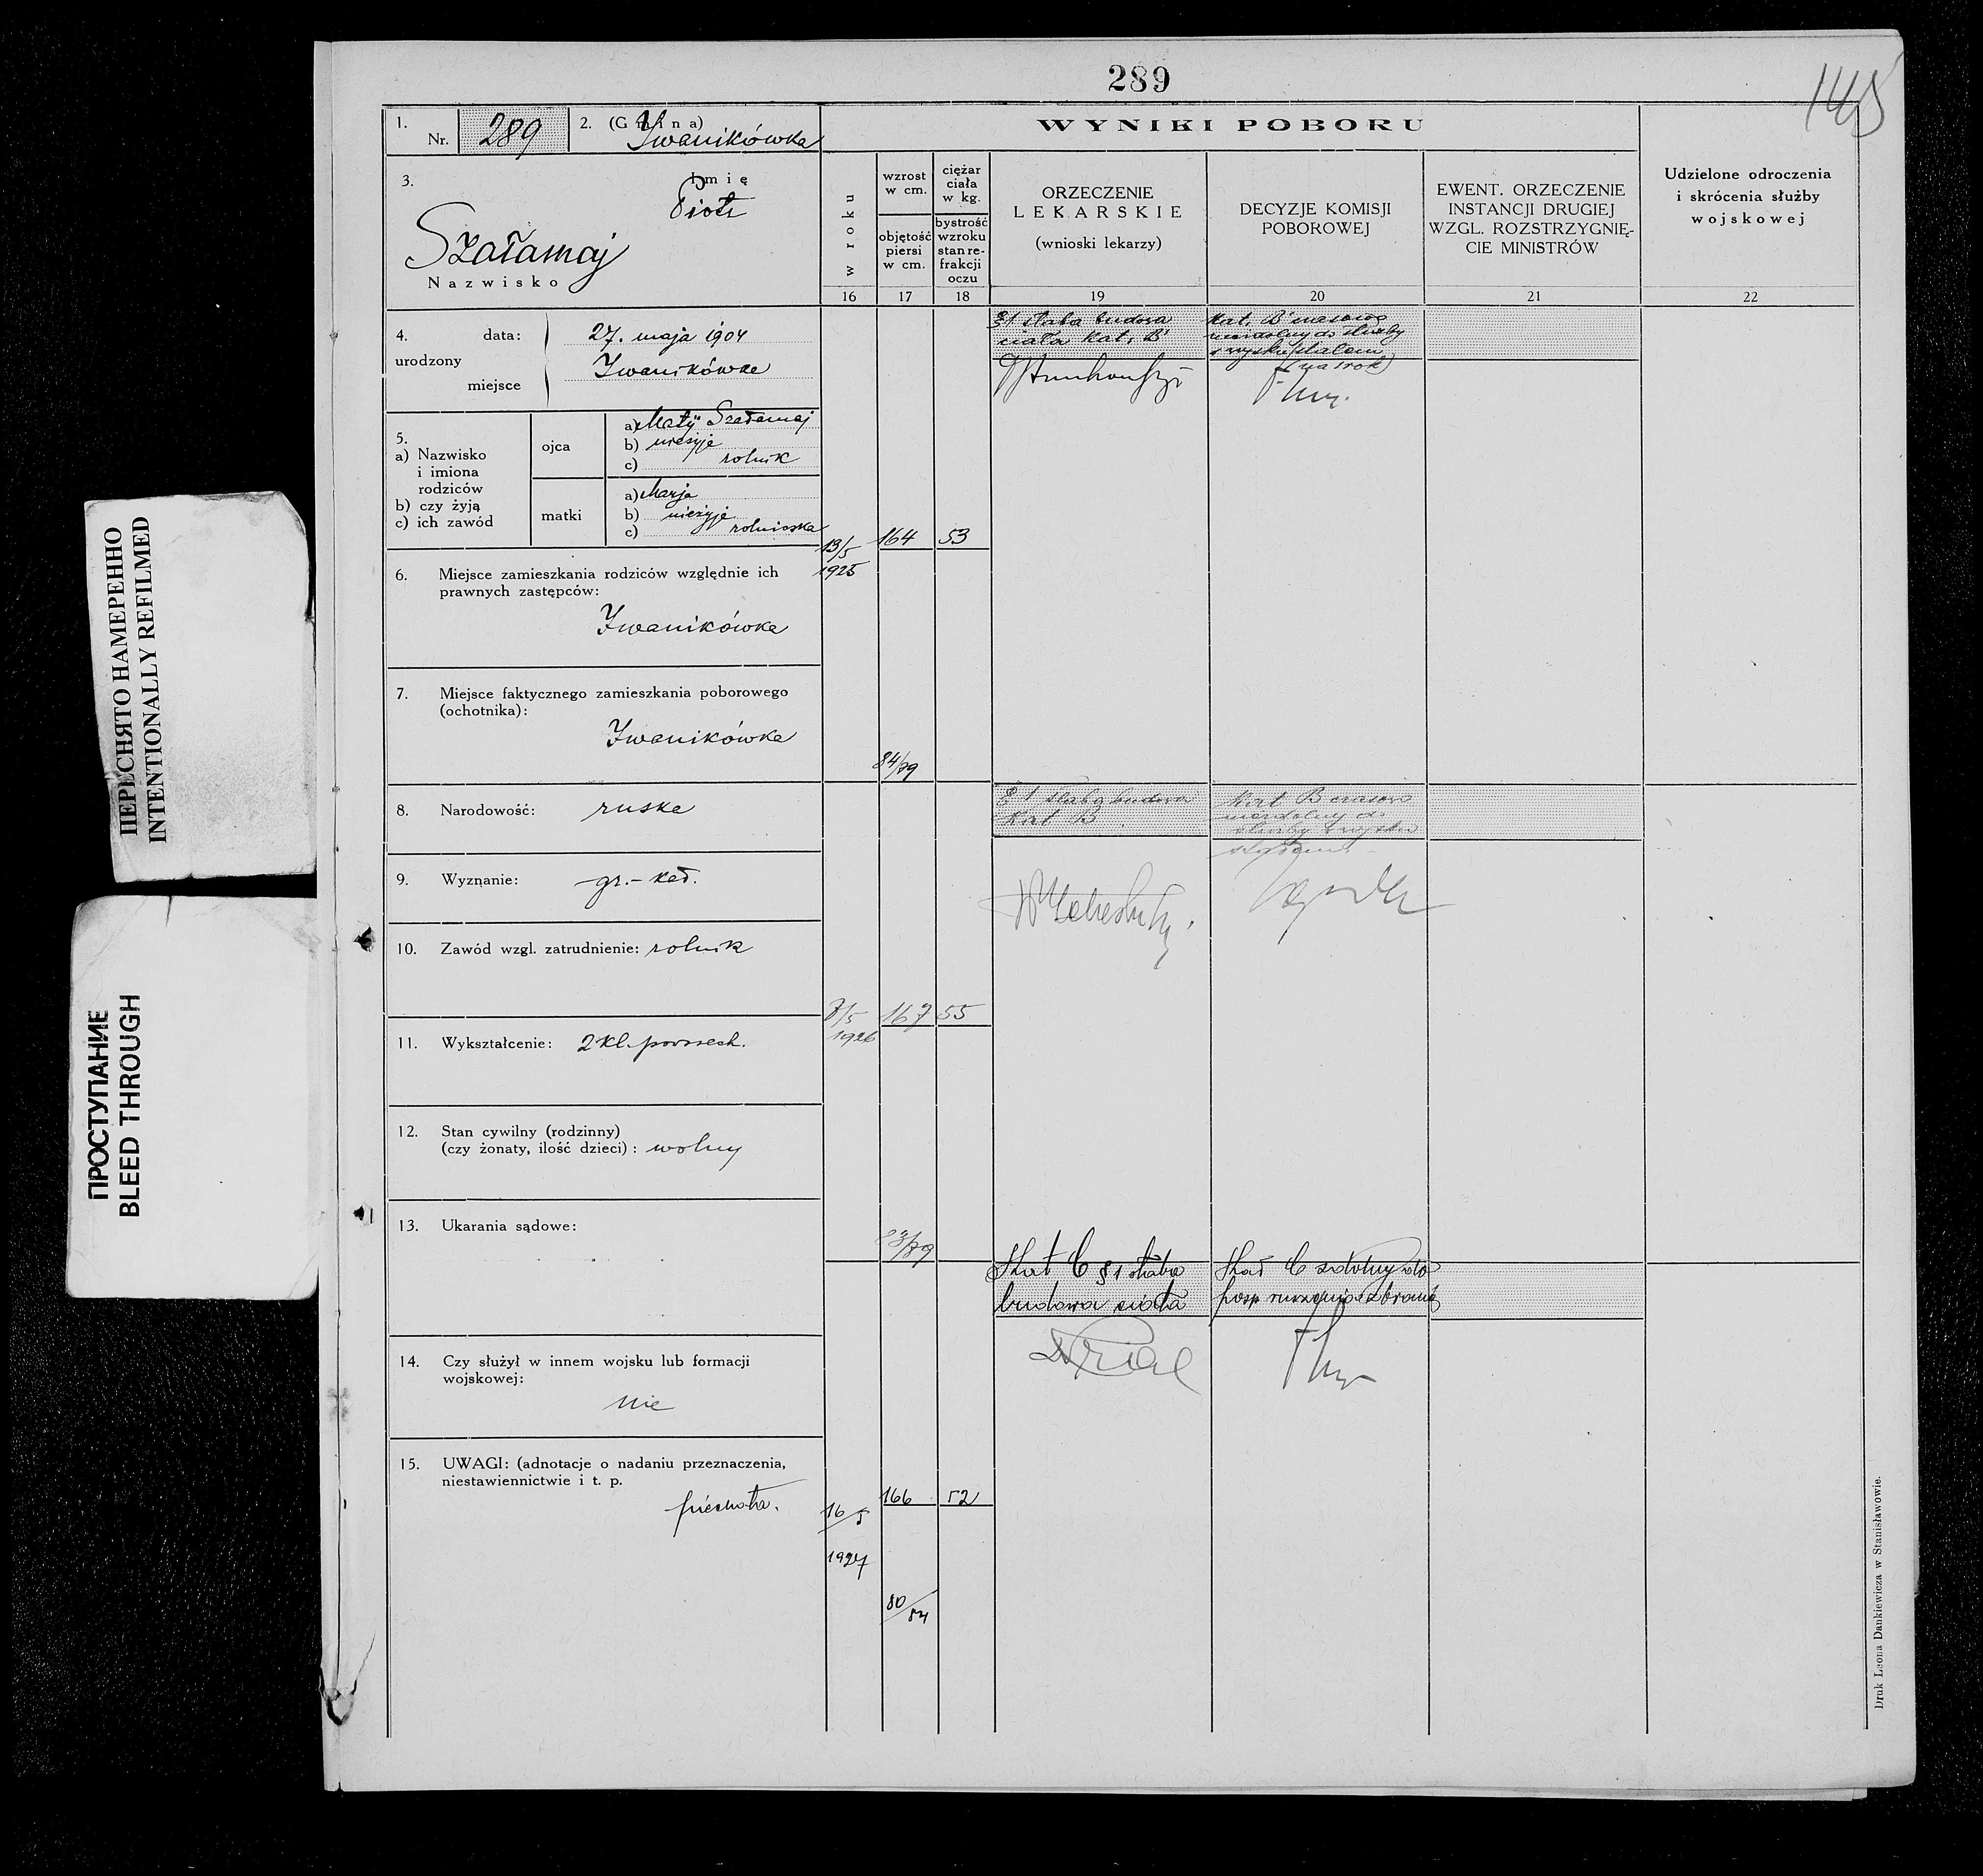 289
145
1.
Nr. 289
2. (Gmina)
Iwanikówka
3.
Imię
Piotr
Szałamaj
Nazwisko
4.
urodzony
data: 27. maja 1904
miejsce Iwanikówka
5.
a) Nazwisko
i imiona
rodziców
b) czy żyją
c) ich zawód
ojca
a) Matij Szałamaj
b) nieżyje
c) rolnik
matki
a) Marja
b) nieżyje
c) rolniczka
6. Miejsce zamieszkania rodziców względnie ich
prawnych zastępców:
Iwanikówka
7. Miejsce faktycznego zamieszkania poborowego
(ochotnika):
Iwanikówka
8. Narodowość: ruska
9. Wyznanie: gr.-kat.
10. Zawód wzgl. zatrudnienie: rolnik
11. Wykształcenie: 2 kl. powszech.
12. Stan cywilny (rodzinny)
(czy żonaty, ilość dzieci): wolny
13. Ukarania sądowe:
14. Czy służył w innem wojsku lub formacji
wojskowej:
nie
15. UWAGI: (adnotacje o nadaniu przeznaczenia,
niestawiennictwie i t. p.
piechota.
WYNIKI POBORU
w roku
16
wzrost
w cm.
objętość
piersi
w cm.
17
ciężar
ciała
w kg.
bystrość
wzroku
stan re-
frakcji
oczu
18
ORZECZENIE
LEKARSKIE
(wnioski lekarzy)
19
DECYZJE KOMISJI
POBOROWEJ
20
EWENT. ORZECZENIE
INSTANCJI DRUGIEJ
WZGL. ROZSTRZYGNIĘ-
CIE MINISTRÓW
21
Udzielone odroczenia
i skrócenia służby
wojskowej
22
13/5
1925
164
53
84/89
§1 słaba budowa
ciała Kat. B
Kat. B czasowo
niezdolny do służby
w wojsku stałem
(na 1 rok)
7/5
1926
167
55
/89
§ 1 słaba budowa
Kat B
Kat B czasowo
niezdolny do
służby w wojsku
stałem.
16/5
1927
166
52
80/84
Kat C §1 słaba
budowa ciała
Kat C zdolny do
posp. ruszenia z bronią
Druk Leona Dankiewicza w Stanisławowie.
ПЕРЕСНЯТО НАМЕРЕННО
INTENTIONALLY REFILMED
ПРОСТУПАНИЕ
BLEED THROUGH